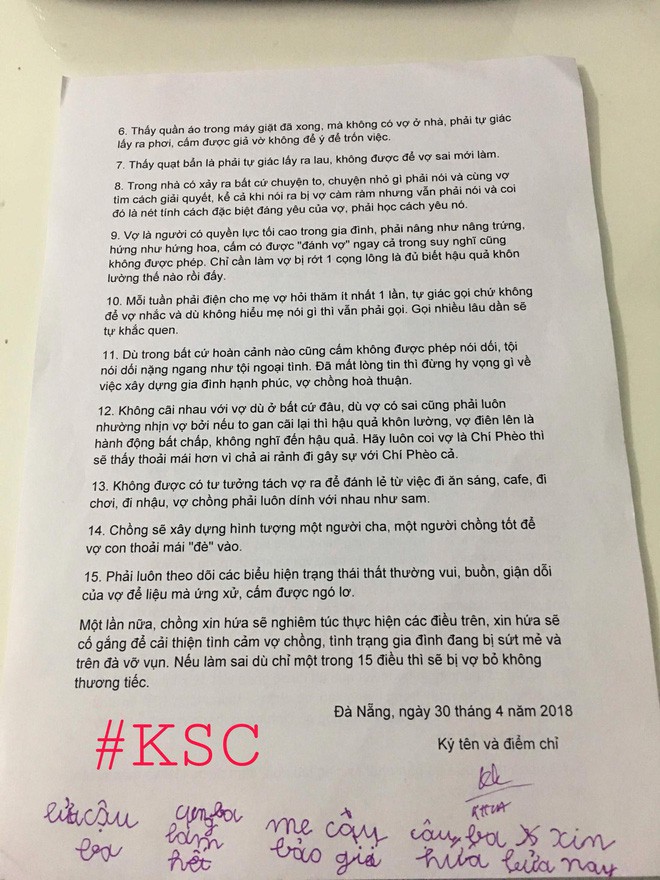 6. Thấy quần áo trong máy giặt đã xong, mà không có vợ ở nhà, phải tự giác
lấy ra phơi, cấm được giả vờ không để ý để trốn việc.
7. Thấy quạt bẩn là phải tự giác lấy ra lau, không được để vợ sai mới làm.
8. Trong nhà có xảy ra bất cứ chuyện to, chuyện nhỏ gì phải nói và cùng vợ
tìm cách giải quyết, kể cả khi nói ra bị vợ càm ràm nhưng vẫn phải nói và coi
đó là nét tính cách đặc biệt đáng yêu của vợ, phải học cách yêu nó.
9. Vợ là người có quyền lực tối cao trong gia đình, phải nâng như nâng trứng,
hứng như hứng hoa, cấm có được "đánh vợ" ngay cả trong suy nghĩ cũng
không được phép. Chỉ cần làm vợ bị rớt 1 cọng lông là đủ biết hậu quả khôn
lường thế nào rồi đấy.
10. Mỗi tuần phải điện cho mẹ vợ hỏi thăm ít nhất 1 lần, tự giác gọi chứ không
để vợ nhắc và dù không hiểu mẹ nói gì thì vẫn phải gọi. Gọi nhiều lâu dần sẽ
tự khắc quen.
11. Dù trong bất cứ hoàn cảnh nào cũng cấm không được phép nói dối, tội
nói dối nặng ngang như tội ngoại tình. Đã mất lòng tin thì đừng hy vọng gì về
việc xây dựng gia đình hạnh phúc, vợ chồng hoà thuận.
12. Không cãi nhau với vợ dù ở bất cứ đâu, dù vợ có sai cũng phải luôn
nhường nhịn vợ bởi nếu to gan cãi lại thì hậu quả khôn lường, vợ điên lên là
hành động bất chấp, không nghĩ đến hậu quả. Hãy luôn coi vợ là Chí Phèo thì
sẽ thấy thoải mái hơn vì chả ai rảnh đi gây sự với Chí Phèo cả.
13. Không được có tư tưởng tách vợ ra để đánh lẻ từ việc đi ăn sáng, cafe, đi
chơi, đi nhậu, vợ chồng phải luôn dính với nhau như sam.
14. Chồng sẽ xây dựng hình tượng một người cha, một người chồng tốt để
vợ con thoải mái "đè" vào.
15. Phải luôn theo dõi các biểu hiện trạng thái thất thường vui, buồn, giận dỗi
của vợ để liệu mà ứng xử, cấm được ngó lơ.
Một lần nữa, chồng xin hứa sẽ nghiêm túc thực hiện các điều trên, xin hứa sẽ
cố gắng để cải thiện tình cảm vợ chồng, tình trạng gia đình đang bị sứt mẻ và
trên đà vỡ vụn. Nếu làm sai dù chỉ một trong 15 điều thì sẽ bị vợ bỏ không
thương tiếc.
Đà Nẵng, ngày 30 tháng 4 năm 2018
Ký tên và điểm chỉ
#KSC